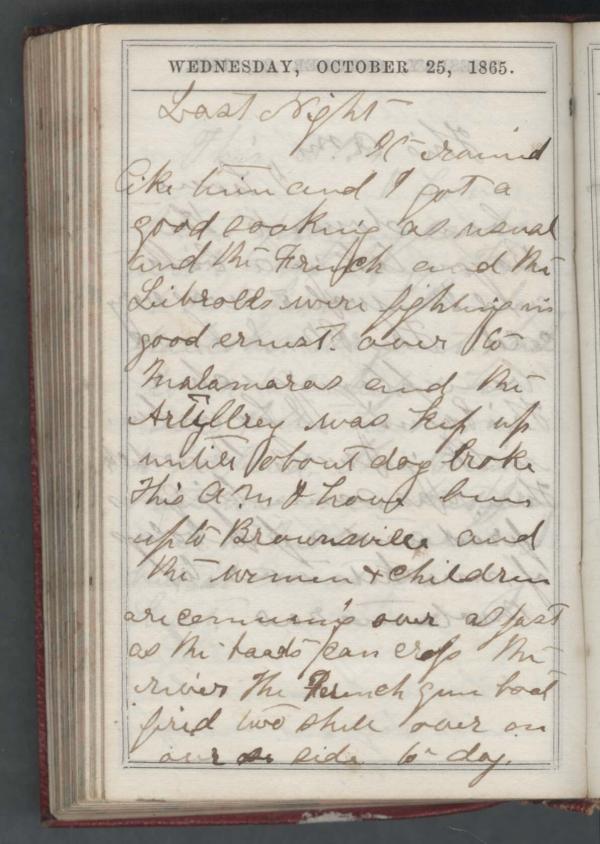 WEDNESDAY, OCTOBER 25, 1865.
Last Night
It raind
like him and I got a
good soaking as usual
and the French and the
Librolls were fighting in
good ernest. over to
Matamaras and the
Artyllrey was kep up
untill about day broke
this A.M I have bin
up to Brownsville and
the wemen & children
are comming over as fast
as the boats can cross the
river The French gun boat
fired two shell over on
our side to day.